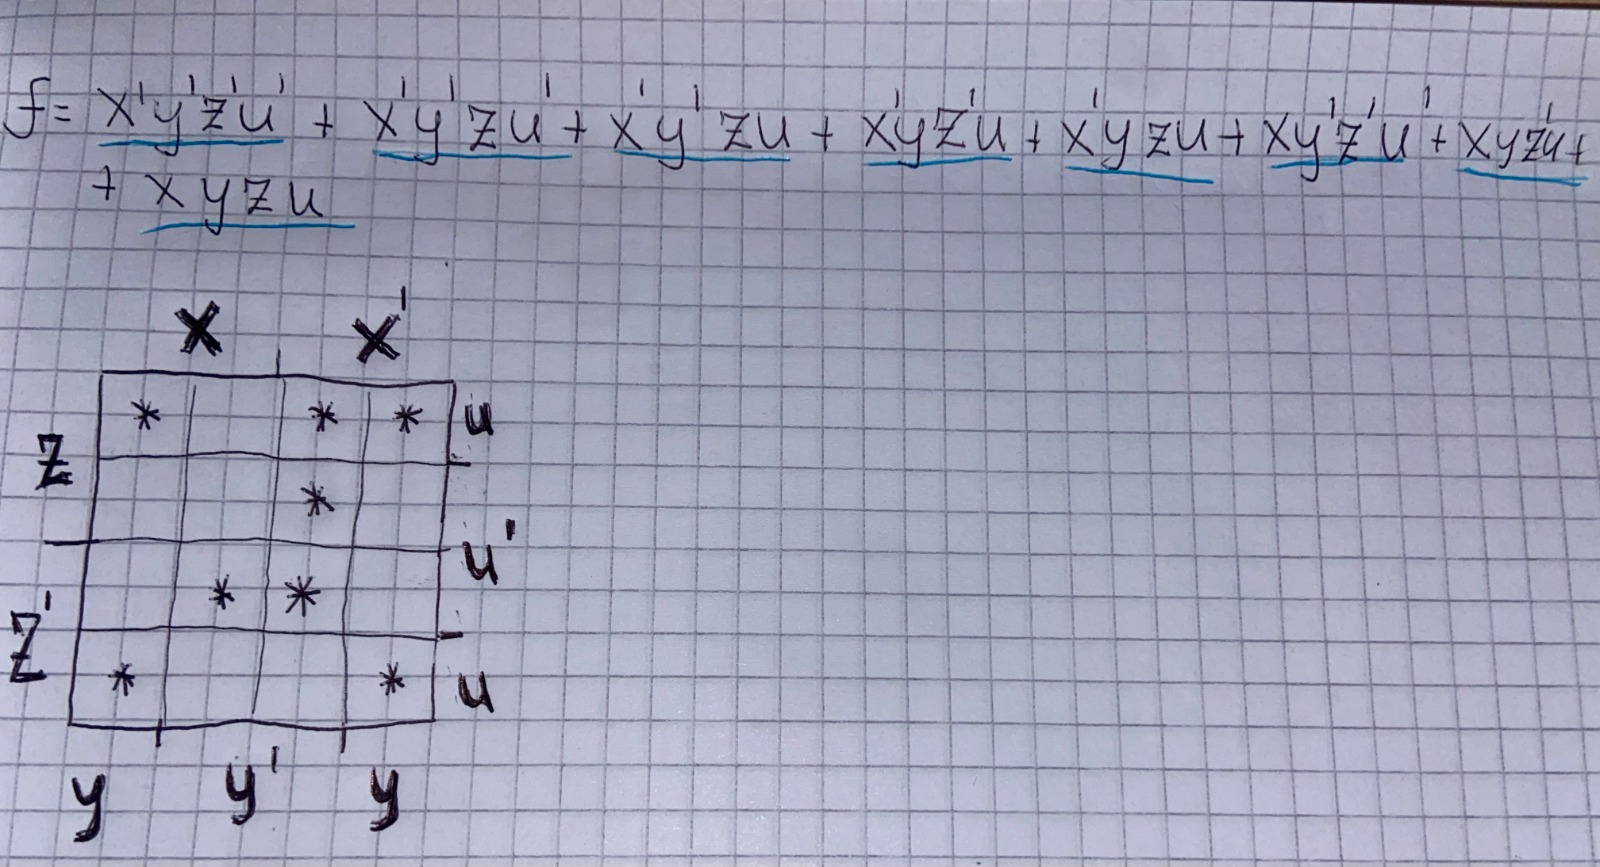 f= x'y'z'u' + x'y'zu' + x'y'zu + x'yz'u + x'yzu + xy'z'u' + xyz'u +
+ xyzu
x x'
* * * u
z
*
u'
* *
z'
* * u
y y' y